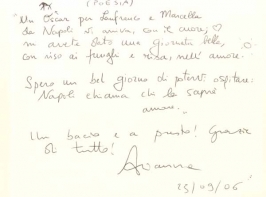 (POESIA)
"Un Oscar per Gianfranco e Marcella
da Napoli vi arriva, con il cuore,
mi avete dato una giornata bella,
con riso ai funghi e risa, nell'amore.
Spero un bel giorno di potervi ospitare:
Napoli chiama chi la saprà
amare.
Un bacio e a presto! Grazie
di tutto!
25/09/06